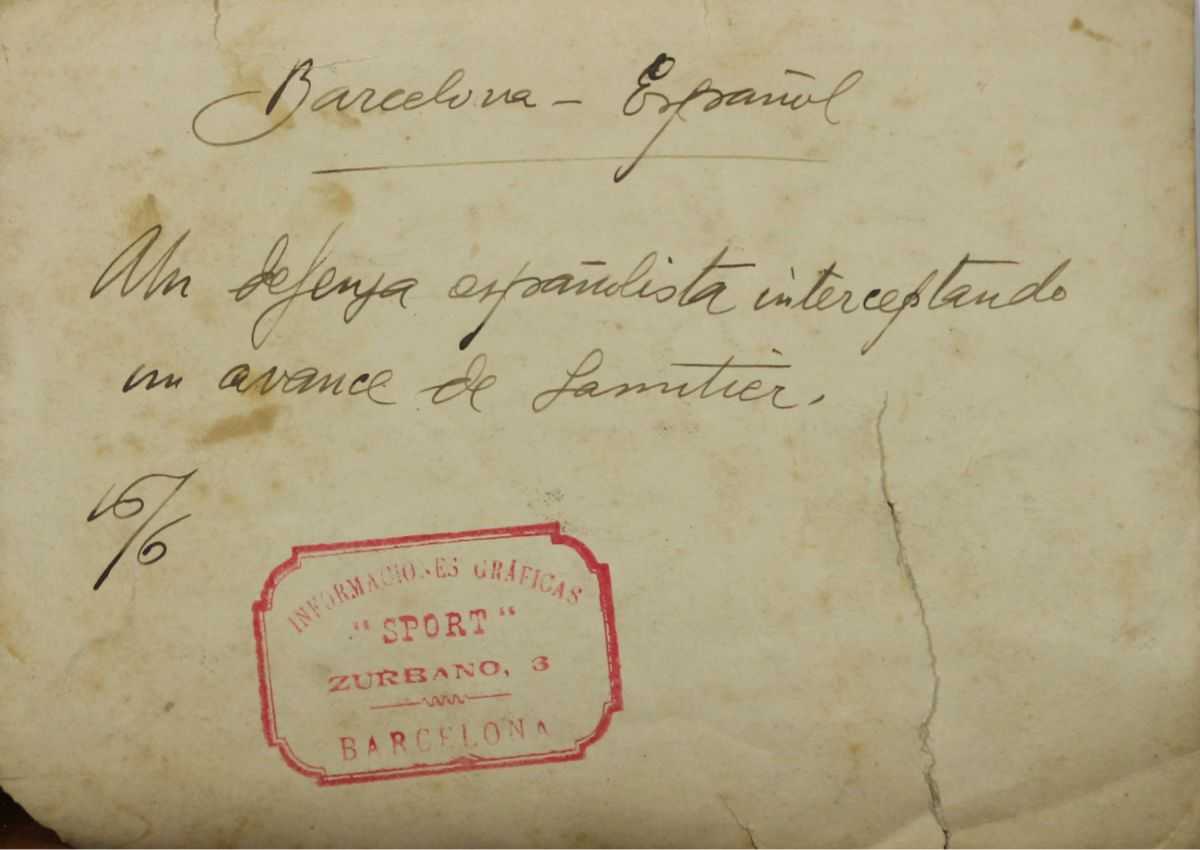 Barcelona - Español
Un defensa españolista interceptando
un avance de Samitier.
15/6
INFORMACIONES GRÁFICAS
"SPORT"
ZURBANO, 3
BARCELONA